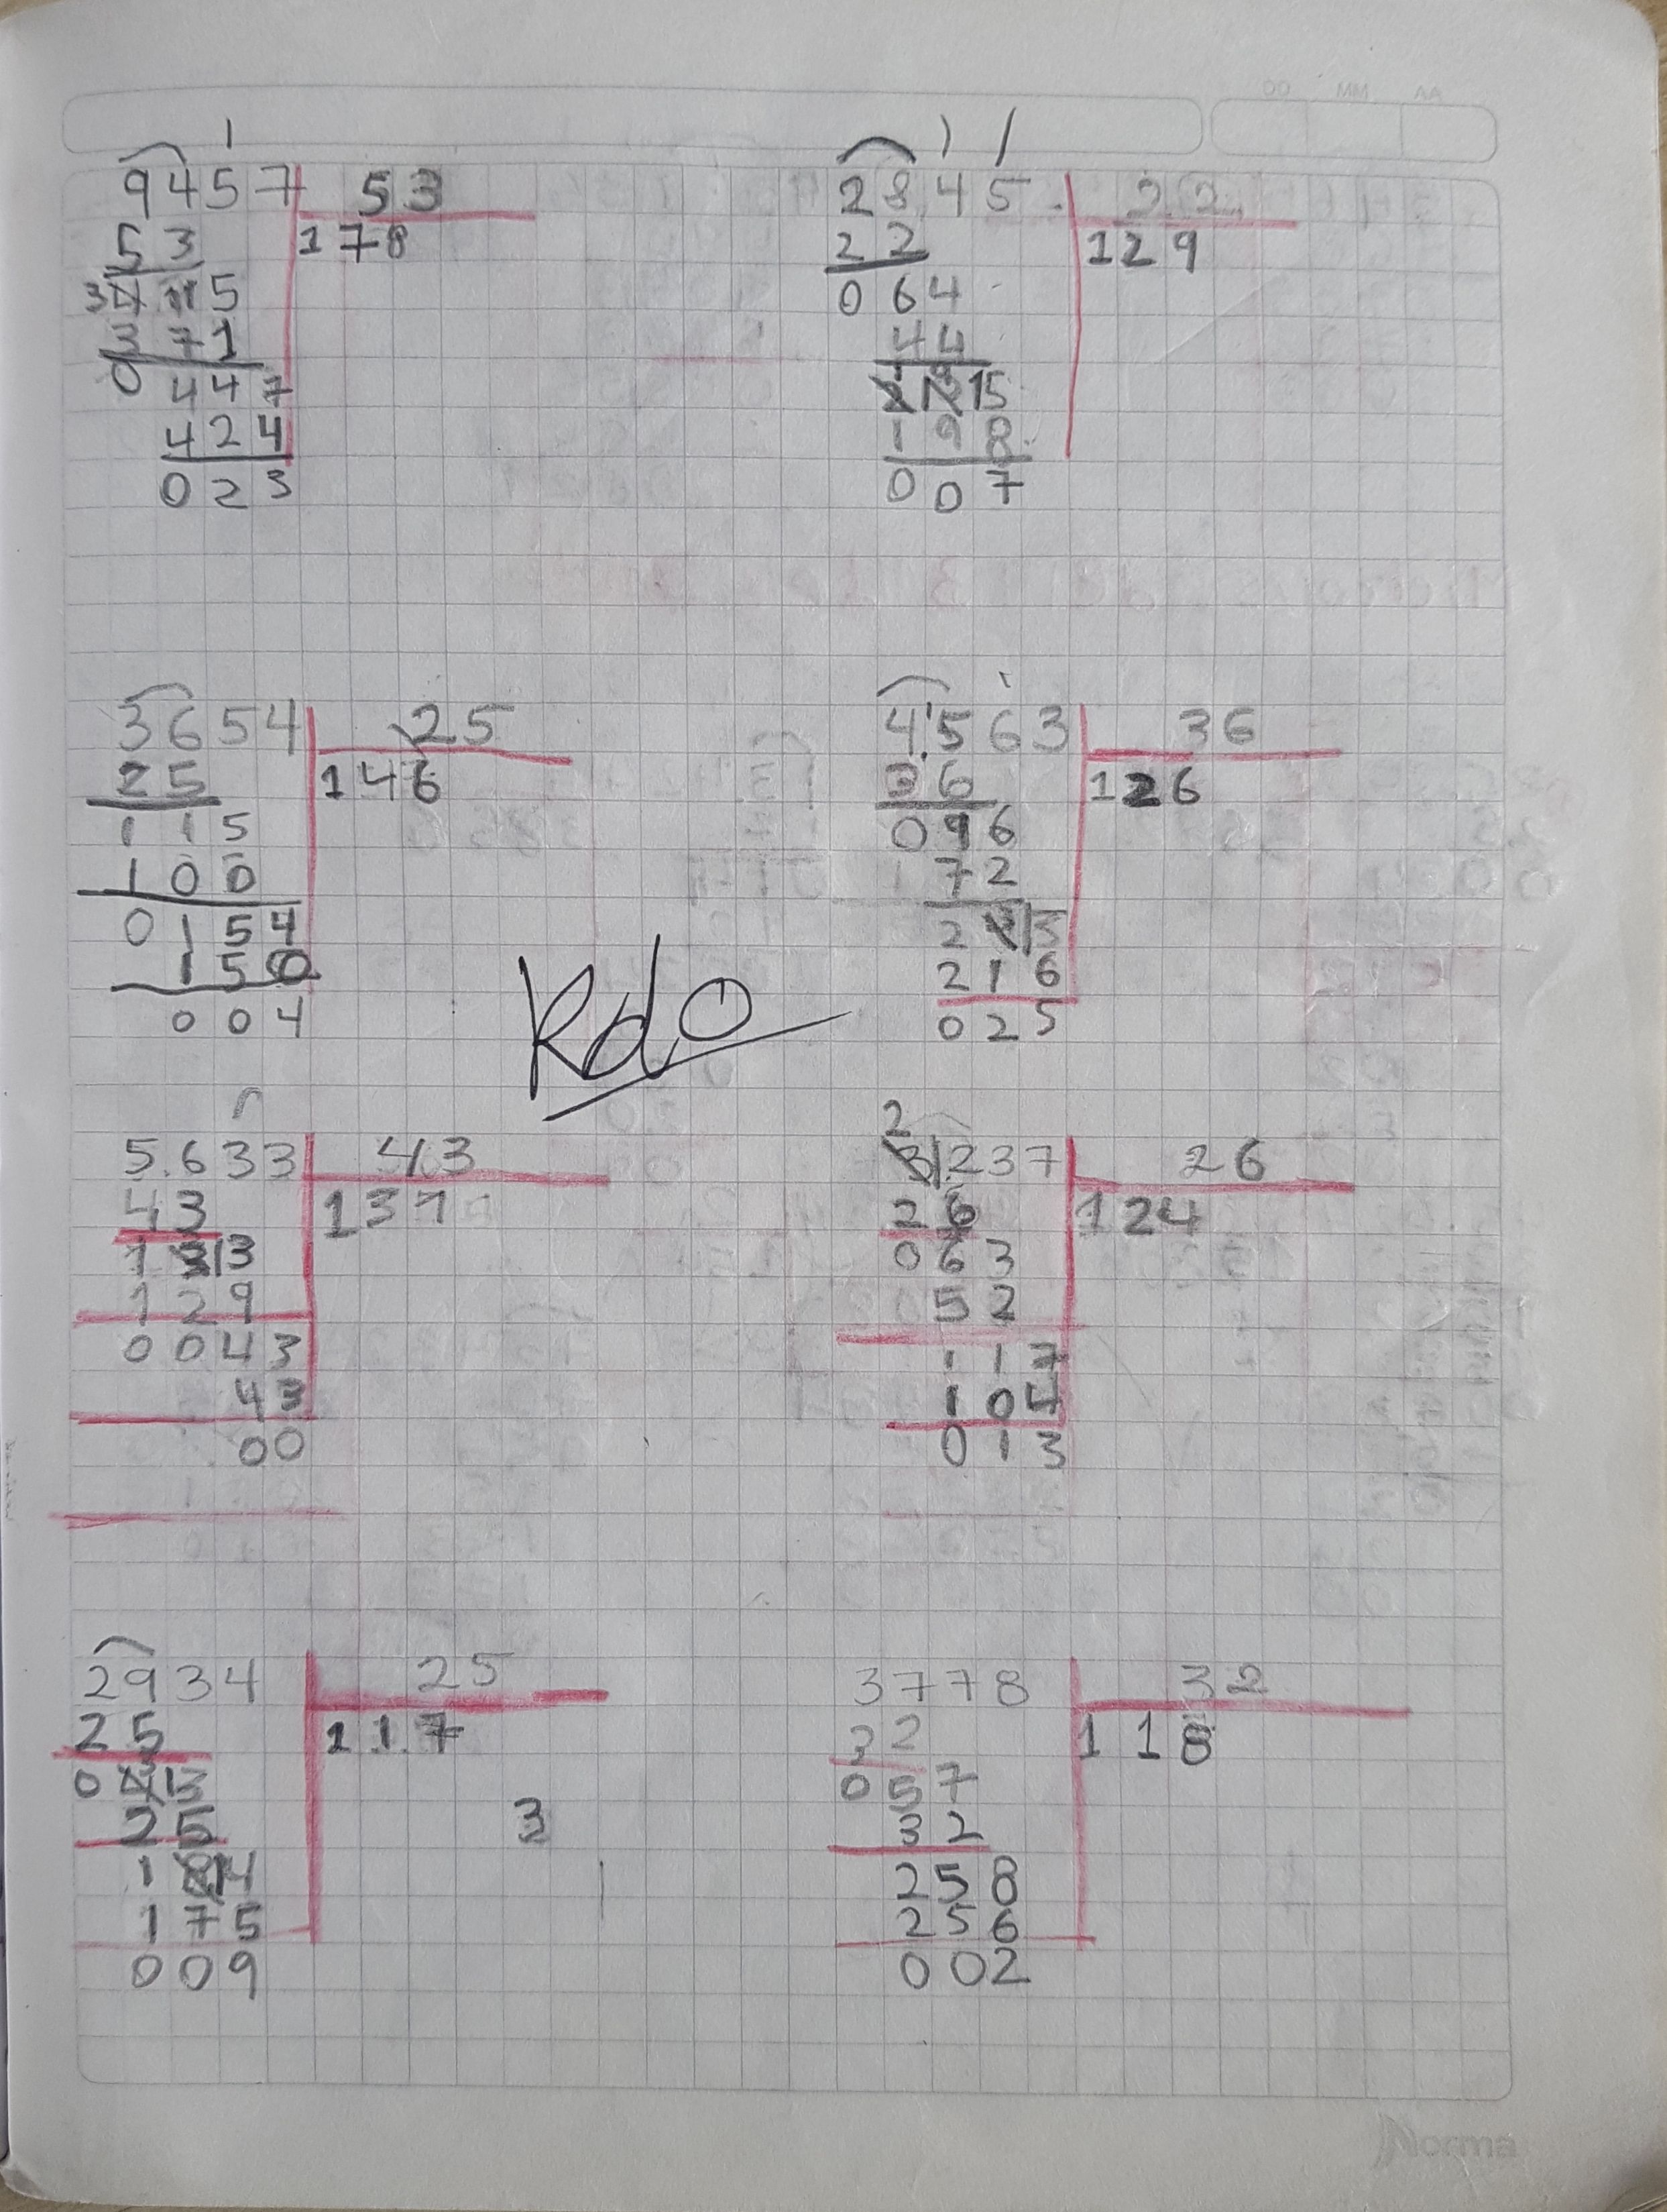 DD MM AA
9457 53
53 178
3 4 11 5
371
0447
424
023
2845 22
22 129
064
44
2 12 15
198
007
3654 25
25 146
115
100
0154
150
004
4.563 36
36 126
096
72
2 4 13
216
025
Rdo
5.633 43
43 131
1 3 13
129
0043
43
00
2
3 1237 26
26 124
063
52
117
104
013
2934 25
25 1.1.7
0 4 13
25
1 8 14
175
009
3
3778 32
32 118
057
32
258
256
002
Norma